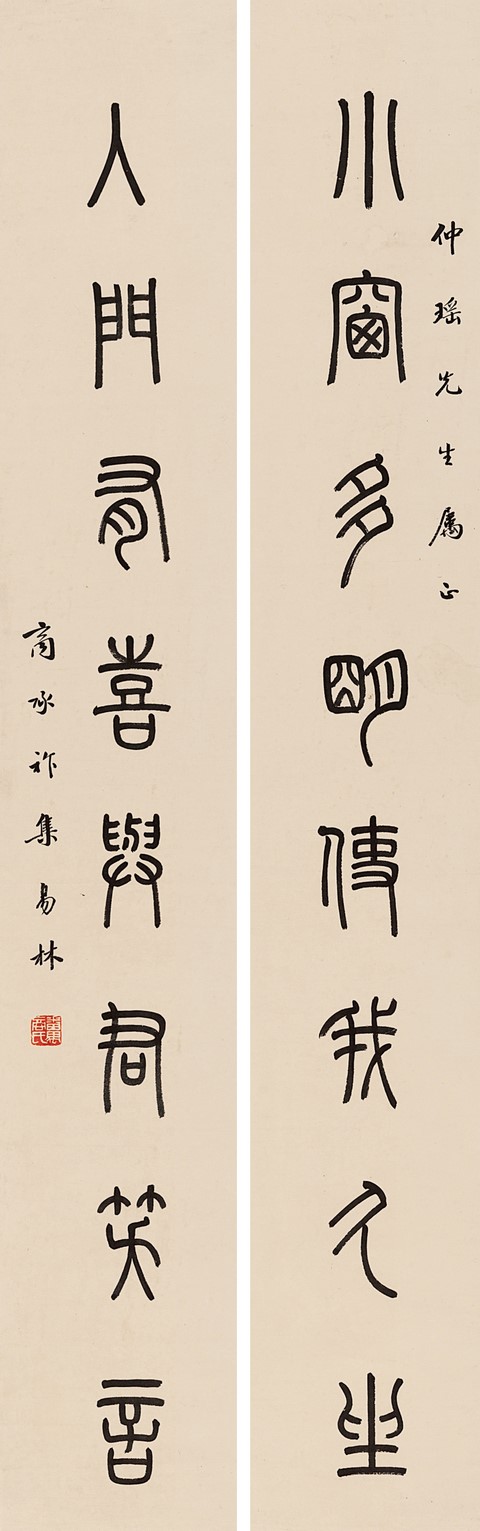 仲瑶先生属正
小窗多明使我久坐
入門有喜與君笑言
商承祚集易林